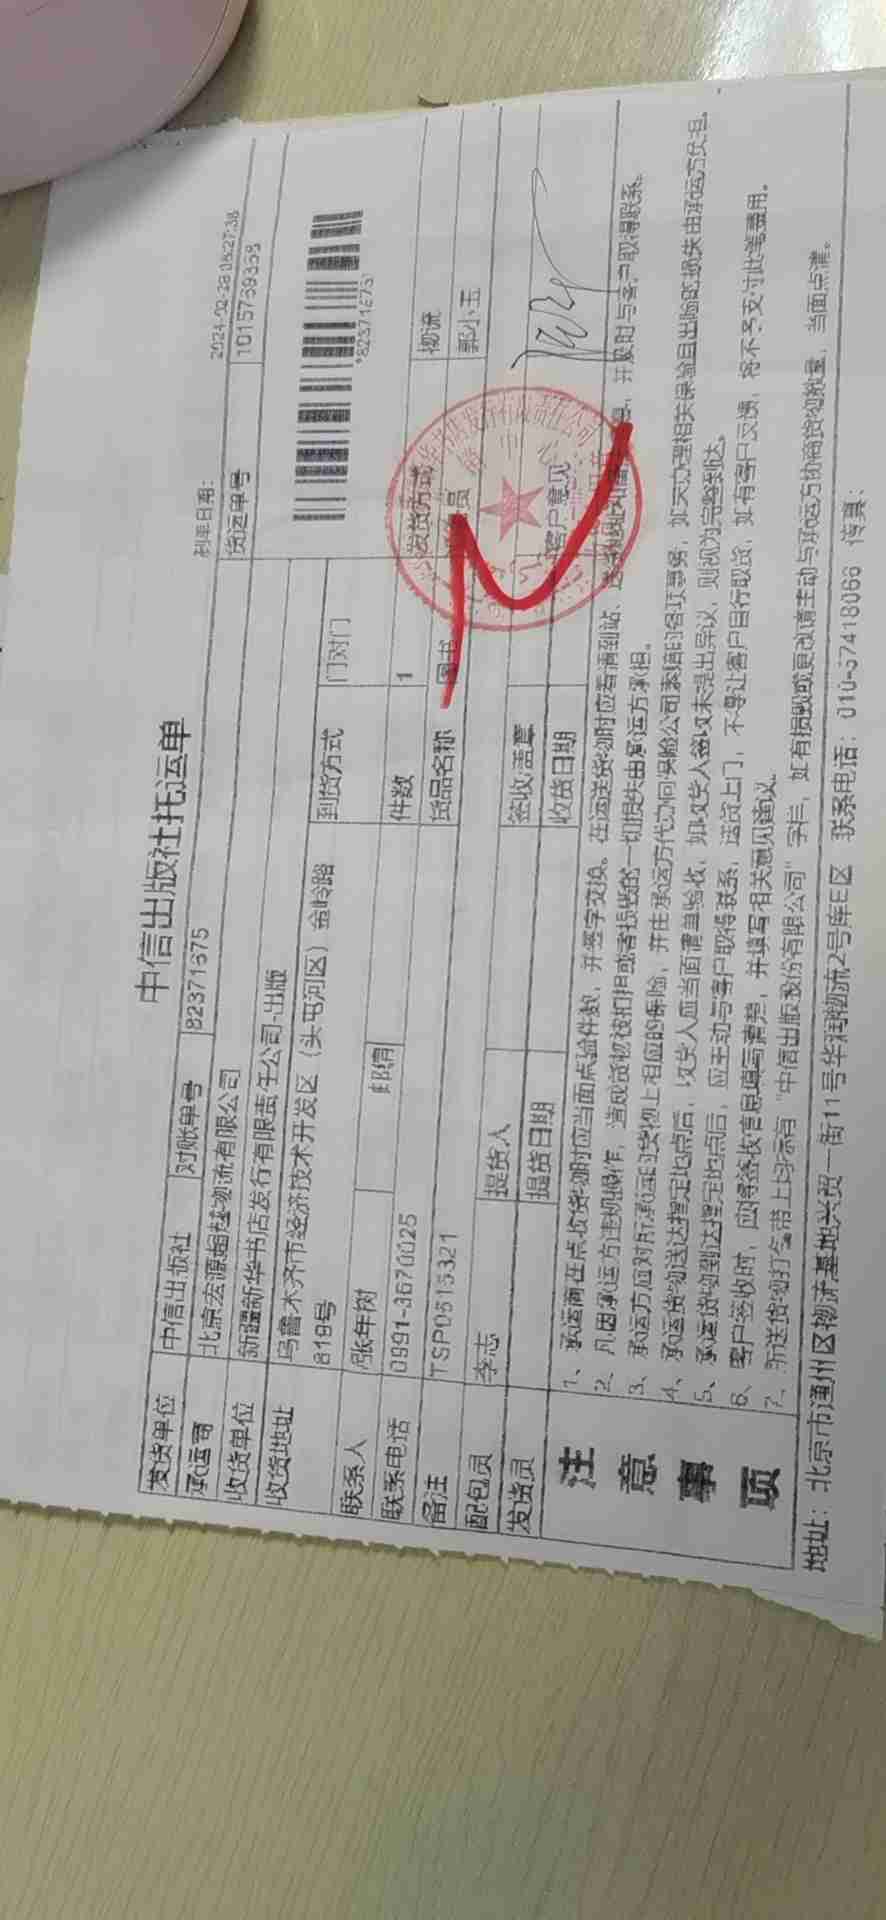 中信出版社托运单
制单日期：
发货单位 中信出版社 对账单号 82371675 货运单号 1015769359
承运商 北京宏源
物流有限公司
收货单位 新疆新华书店发行有限责任公司-出版
收货地址 乌鲁木齐市经济技术开发区（头屯河区）金岭路
819号
到货方式 门对门 发货方式 物流
联系人 张年树 邮编 件数 1
郭小玉
联系电话 0991-3670025 货品名称 图书
备注
配包员 李志 提货人 签收盖章 客户意见
发货员 提货日期 收货日期
注意事项
1、承运商在点收货物时应当面点验件数，并签字交换。在运送货物时应看清到站、
并及时与客户取得联系。
2、凡因承运方违规操作，造成货物被扣押或者损毁的一切损失由承运方承担。
3、承运方应对所承运的货物上相应的保险，并由承运方代办向保险公司索赔的各项事务，如未办理相关保险且出险的损失由承运方负担。
4、承运货物送达指定地点后，收货人应当面清单验收，如收货人签收未提出异议，则视为完整到达。
5、承运货物到达指定地点后，应主动与客户取得联系，送货上门，不得让客户自行取货，如有客户反馈，将不予支付此笔费用。
6、客户签收时，应将签收信息填写清楚，并填写相关意见建议。
7、所送货物打包带上均标有“中信出版股份有限公司”字样，如有损毁或更改请主动与承运方协商货物数量，当面点清。
地址：北京市通州区物流基地兴贸一街11号华润物流2号库E区 联系电话：010-57418066 传真：